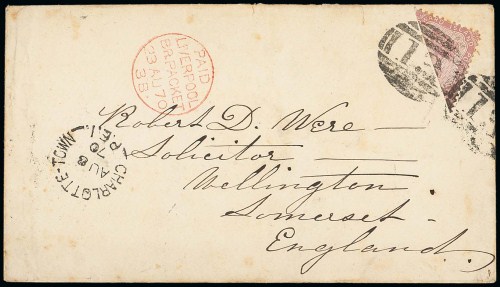 PAID
LIVERPOOL
BR. PACKET
23 AU 70
3B
CHARLOTTE-TOWN
AU 8
70
P.E.I.
Robert D. Were —
Solicitor —
Wellington
Somerset —
England.